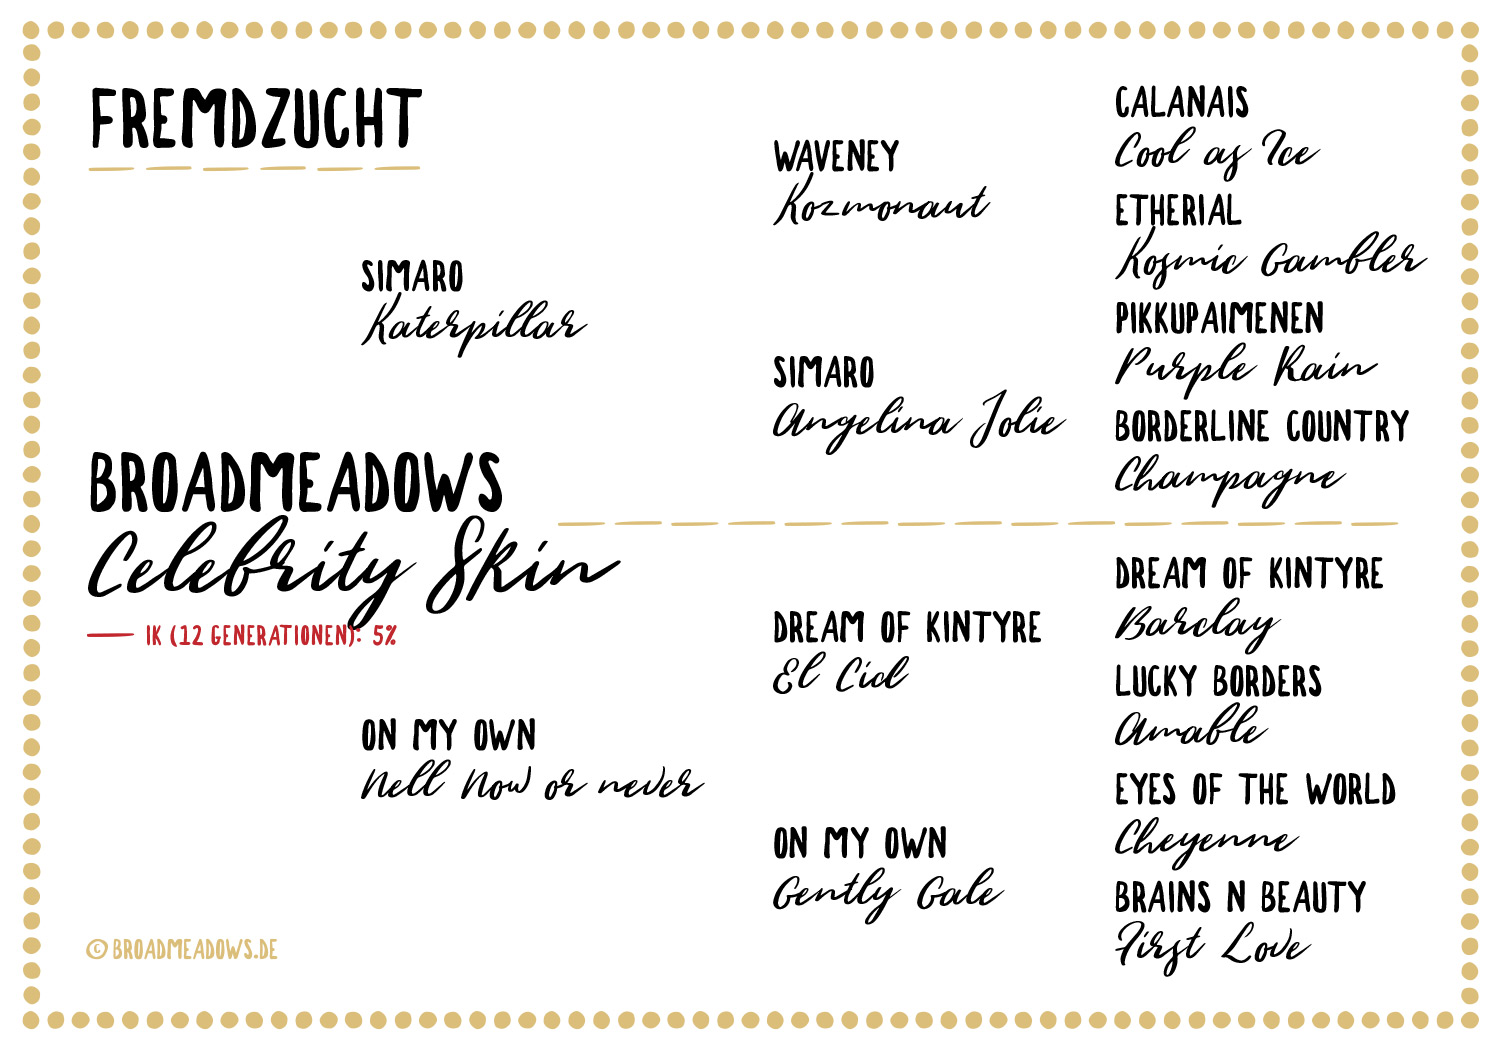 FREMDZUCHT
SIMARO
Katerpillar
BROADMEADOWS
Celebrity Skin
IK (12 GENERATIONEN): 5%
ON MY OWN
Nell Now or never
© BROADMEADOWS.DE
WAVENEY
Kozmonaut
SIMARO
Angelina Jolie
DREAM OF KINTYRE
El Cid
ON MY OWN
Gently Gale
CALANAIS
Cool as Ice
ETHERIAL
Kosmic Gambler
PIKKUPAIMENEN
Purple Rain
BORDERLINE COUNTRY
Champagne
DREAM OF KINTYRE
Barclay
LUCKY BORDERS
Amable
EYES OF THE WORLD
Cheyenne
BRAINS N BEAUTY
First Love